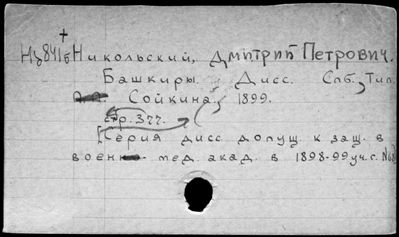 Нз 8416 Никольский, Дмитрий Петрович.
Башкиры. Дисс. Спб., Тип.
Сойкина, 1899.
стр. 377.
[Серия дисс. допущ. к защ. в
воен. мед. акад. в 1898-99 уч. г. №